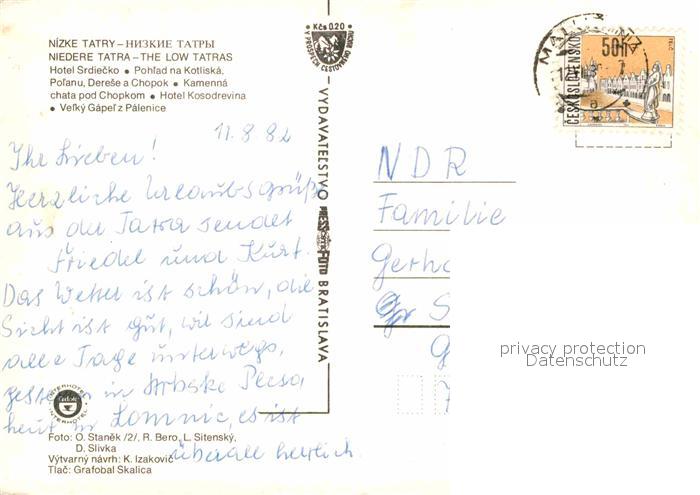 NÍZKE TATRY – НИЗКИЕ ТАТРЫ
NIEDERE TATRA – THE LOW TATRAS
Hotel Srdiečko • Pohľad na Kotliská,
Poľanu, Dereše a Chopok • Kamenná
chata pod Chopkom • Hotel Kosodrevina
• Veľký Gápeľ z Pálenice
11. 8 82
Ihr Lieben!
Herzliche Urlaubsgrüße
aus der Tatra sendet
Friedel und Kurt.
Das Wetter ist schön, die
Sicht ist gut, wir sind
alle Tage unterwegs,
gestern in Strbske Pleso
heut in Lomnic, es ist
überall herrlich.
INTERHOTEL
INTERHOTEL
Foto: O. Staněk /2/, R. Bero, L. Sitenský,
D. Slivka
Výtvarný návrh: K. Izakovič
Tlač: Grafobal Skalica
Kčs 0.20
V PROSPECH CESTOVNÉHO RUCHU
VYDAVATEĽSTVO
PRESSFOTO
BRATISLAVA
50h
ČESKOSLOVENSKO
NDR
Familie
Gerh
S
G
7
privacy protection
Datenschutz